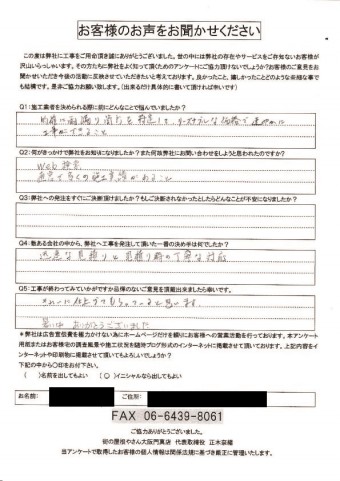 お客様のお声をお聞かせください
この度は弊社に工事をご用命頂き誠にありがとうございました。世の中には弊社の存在やサービスをご存知ないお客様が
沢山いらっしゃいます。その方たちに弊社をよく知って頂くためのアンケートにご協力頂けないでしょうか?お客様のご意見をお
聞かせいただき今後の活動に反映させていただきたいと考えております。良かったこと、嬉しかったことどのような些細な事で
も結構です。是非ご協力お願い致します。(出来るだけ具体的に書いて頂ければ幸いです)
Q1:施工業者を決められる際に前にどんなことで悩んでいましたか?
的確に雨漏り箇所を特定して、リーズナブルな価格で速やかに
工事ができること
Q2:何がきっかけで弊社をお知りになりましたか?また何故弊社にお問い合わせをしようと思われたのですか?
Web検索
Q3:弊社への発注をすぐにご決断頂けますか?もしご決断されなかったとしたらどんなことが不安になりましたか?
Q4:数ある会社の中から、弊社へ工事を発注して頂いた一番の決め手は何でしたか?
迅速な見積りと見積り時の丁寧な対応
Q5:工事が終わってみていかがですか品得のないご意見を頂戴出来ましたら幸いです。
きれいに仕上げてもらっていると思います。
ありがとうございました
*弊社は広告宣伝費を極力かけない為にホームページだけを頼りにお客様への営業活動を行っております。本アンケート
用紙またはお客様宅の調査風景や施工状況を随時ブログ形式のインターネットに掲載させて頂いております。上記内容をイ
ンターネットや印刷物に掲載させて頂てもよろしいでしょうか?
下記の中から〇印をお付下さい。
( )名前を出してもよい (〇)イニシャルなら出してもよい
お名前:
ご住所:
FAX 06-6439-8061
ご協力ありがとうございました。
街の屋根やさん大阪門真店 代表取締役 正木宗緒
当アンケートで取得したお客様の個人情報は関係法規に基づき厳正に管理いたします。